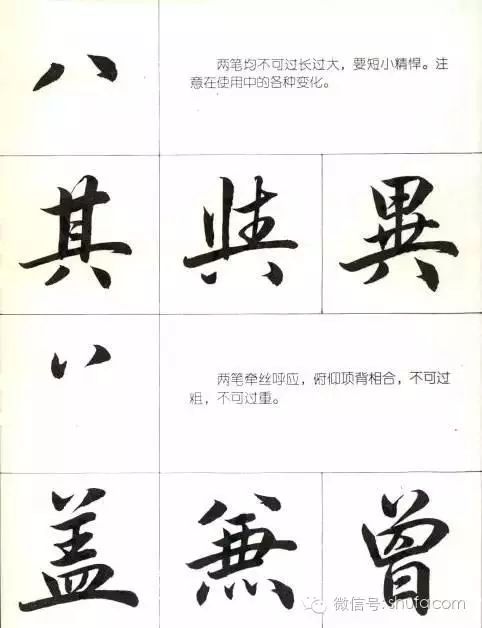 八
两笔均不可过长过大，要短小精悍。注
意在使用中的各种变化。
其 異
丷
两笔牵丝呼应，俯仰项背相合，不可过
粗，不可过重。
盖 兼 曾
微信号: shufacom